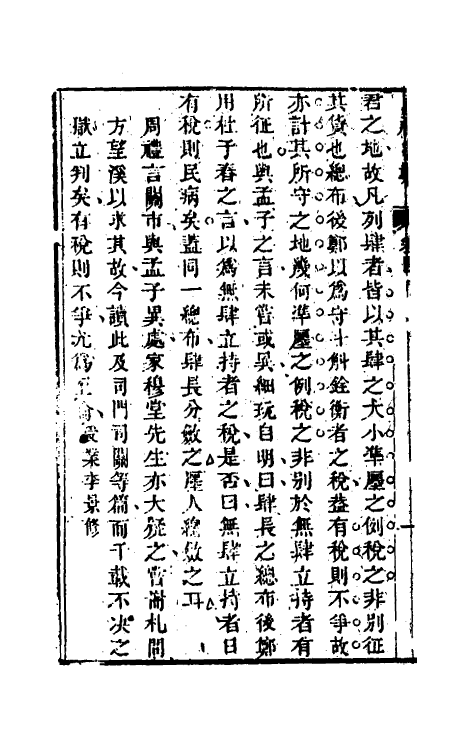 君之地故凡列肆者皆以其肆之大小準廛之例稅之非別征
其貨也總布後鄭以爲守斗斛銓衡者之稅葢有稅則不爭故
亦計其所守之地幾何準廛之例稅之非別於無肆立持者有
所征也與孟子之言未嘗或異細玩自明曰肆長之總布後鄭
用杜子春之言以爲無肆立持者之稅是否曰無肆立持者日
有稅則民病矣葢同一總布肆長分斂之廛人總斂之耳
周禮言關市與孟子異處家穆堂先生亦大疑之嘗謝札問
方望溪以求其故今讀此及司門司關等篇而千載不决之
獄立判矣有稅則不爭尤爲
業李景修